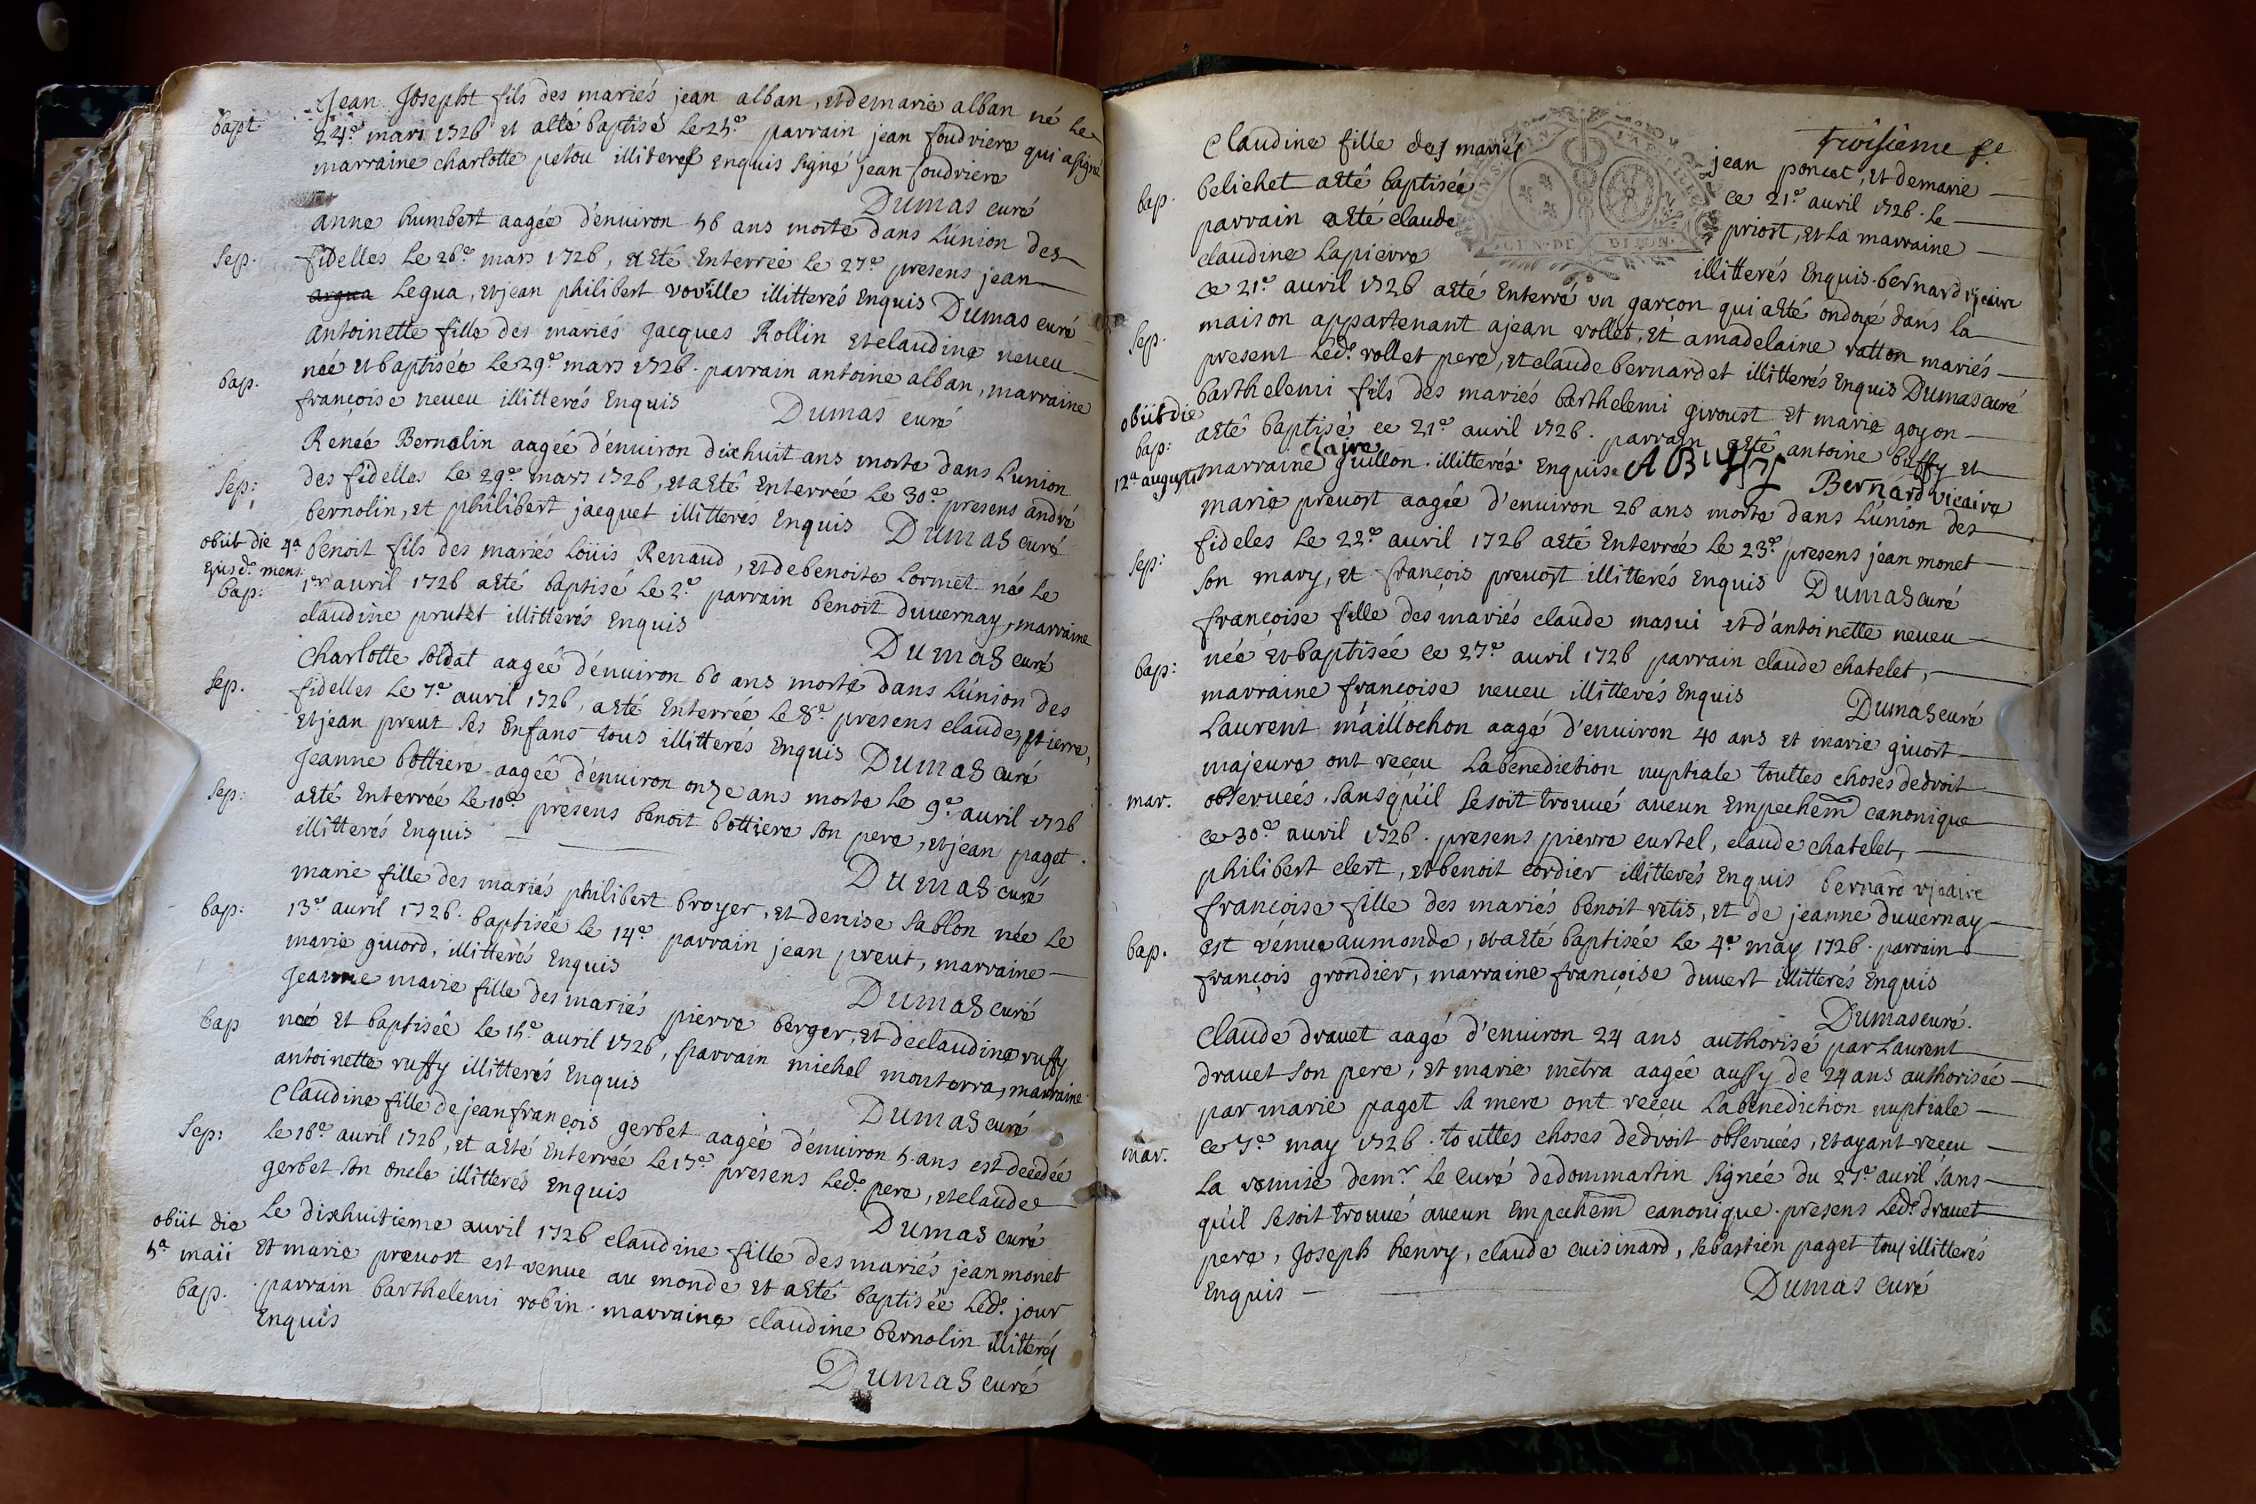 Jean Josepht fils des mariés jean alban, et de marie alban né le
bapt. 24e mars 1726 et a eté baptisé le 25e parrain jean foudriere qui a signé
marraine charlotte petou illiteres Enquis signé jean foudriere
Dumas curé
anne humbert aagée d'enuiron 56 ans morte dans L'union des
sep. fidelles le 26e mars 1726, a Eté Enterrée le 27e presens jean
argua Legua, et jean philibert vouille illitterés Enquis Dumas curé
antoinette fille des mariés jacques Rollin et claudine neueu
bap. née et baptisée le 29e mars 1726. parrain antoine alban, marraine
françoise neueu illitterés Enquis Dumas curé
Renée Bernolin aagée d'enuiron dixhuit ans morte dans L'union
sep: des fidelles le 29e mars 1726, et a eté Enterrée le 30e presens andré
bernolin, et philibert jacquet illitteres Enquis Dumas curé
obiit die 4a ejusd. mens:
benoit fils des mariés Loüis Renaud, et de benoite Lormet né le
bap: 1er avril 1726 a eté baptisé le 2e parrain benoit duuernay, marraine
claudine prutet illitterés Enquis
Dumas curé
Charlotte soldat aagée d'enuiron 60 ans morte dans L'union des
sep. fidelles le 7e auril 1726, a eté Enterrée le 8e presens claude, pierre,
et jean preut ses Enfans tous illitterés Enquis Dumas curé
Jeanne bottiere aagée d'enuiron onze ans morte le 9e auril 1726
sep: a eté Enterrée le 10e presens benoit bottiere son pere, et jean paget.
illitterés Enquis
Dumas curé
marie fille des mariés philibert broyer, et denise sablon née le
bap: 13e auril 1726. baptisée le 14e parrain jean preut, marraine
marie giuord, illitterés Enquis
Dumas curé
Jeanne marie fille des mariés pierre berger, et de claudine ruffy
bap née et baptisée le 15e auril 1726, parrain michel monterra, marraine
antoinette ruffy illitterés Enquis
Dumas curé
Claudine fille de jean françois gerbet aagée d'enuiron 5 ans est decedée
sep: le 16e auril 1726, et a eté Enterrée le 17e presens led. pere, et claude
gerbet son oncle illitterés Enquis
Dumas curé
obiit die 5a maii
Le dixhuitieme auril 1726 claudine fille des mariés jean monet
et marie preuost est venue au monde et a eté baptisée led. jour
bap. parrain barthelemi robin. marraine claudine bernolin illitterés
Enquis
Dumas curé
Troisieme fe
GEN. DE DIJON.
Claudine fille des mariés jean poncet, et de marie
bap. belichet a eté baptisée ce 21e auril 1726. Le
parrain a eté claude priost, et la marraine
claudine Lapierre illitterés Enquis. bernard vicaire
ce 21e auril 1726 a eté Enterré un garçon qui a eté ondoyé dans la
sep. maison appartenant a jean vollet, et a madelaine ratton mariés
present led. vollet pere, et claude bernardet illitterés Enquis Dumas curé
obiit die 12a augusti
barthelemi fils des mariés barthelemi giroust et marie goyon
bap: a eté baptisé ce 21e auril 1726. parrain a eté antoine buffy et
marraine claire guillon. illitterés Enquise A Buffy Bernard vicaire
marie preuost aagée d'enuiron 26 ans morte dans L'union des
sep: fideles le 22e auril 1726 a eté Enterrée le 23e presens jean monet
son mary, et françois preuost illitterés Enquis Dumas curé
françoise fille des mariés claude masui et d'antoinette neueu
bap: née et baptisée ce 27e auril 1726 parrain claude chatelet,
marraine françoise neueu illitterés Enquis
Dumas curé
Laurent maillochon aagé d'enuiron 40 ans et marie giuort
majeure ont reçeu La benediction nuptiale touttes choses de droit
mar. obseruées. sans qu'il se soit trouué aucun Empechem canonique
ce 30e auril 1726. presens pierre curtel, claude chatelet,
philibert clert, et benoit cordier illitterés Enquis bernard vicaire
françoise fille des mariés benoit retis, et de jeanne duuernay
bap. est vénue au monde, et a eté baptisée le 4e may 1726. parrain
françois grondier, marraine françoise duuert illitterés Enquis
Dumas curé.
Claude drauet aagé d'enuiron 24 ans authorisé par Laurent
drauet son pere, et marie metra aagée aussy de 24 ans authorisée
par marie paget sa mere ont reçeu La benediction nuptiale
mar. ce 7e may 1726. touttes choses de droit obseruées, et ayant reçeu
La remise de mr Le curé de dommartin signée du 27e auril sans
qu'il se soit trouué aucun Empechem canonique. presens led. drauet
pere, Joseph henry, claude cuisinard, sebastien paget tous illitterés
Enquis
Dumas curé